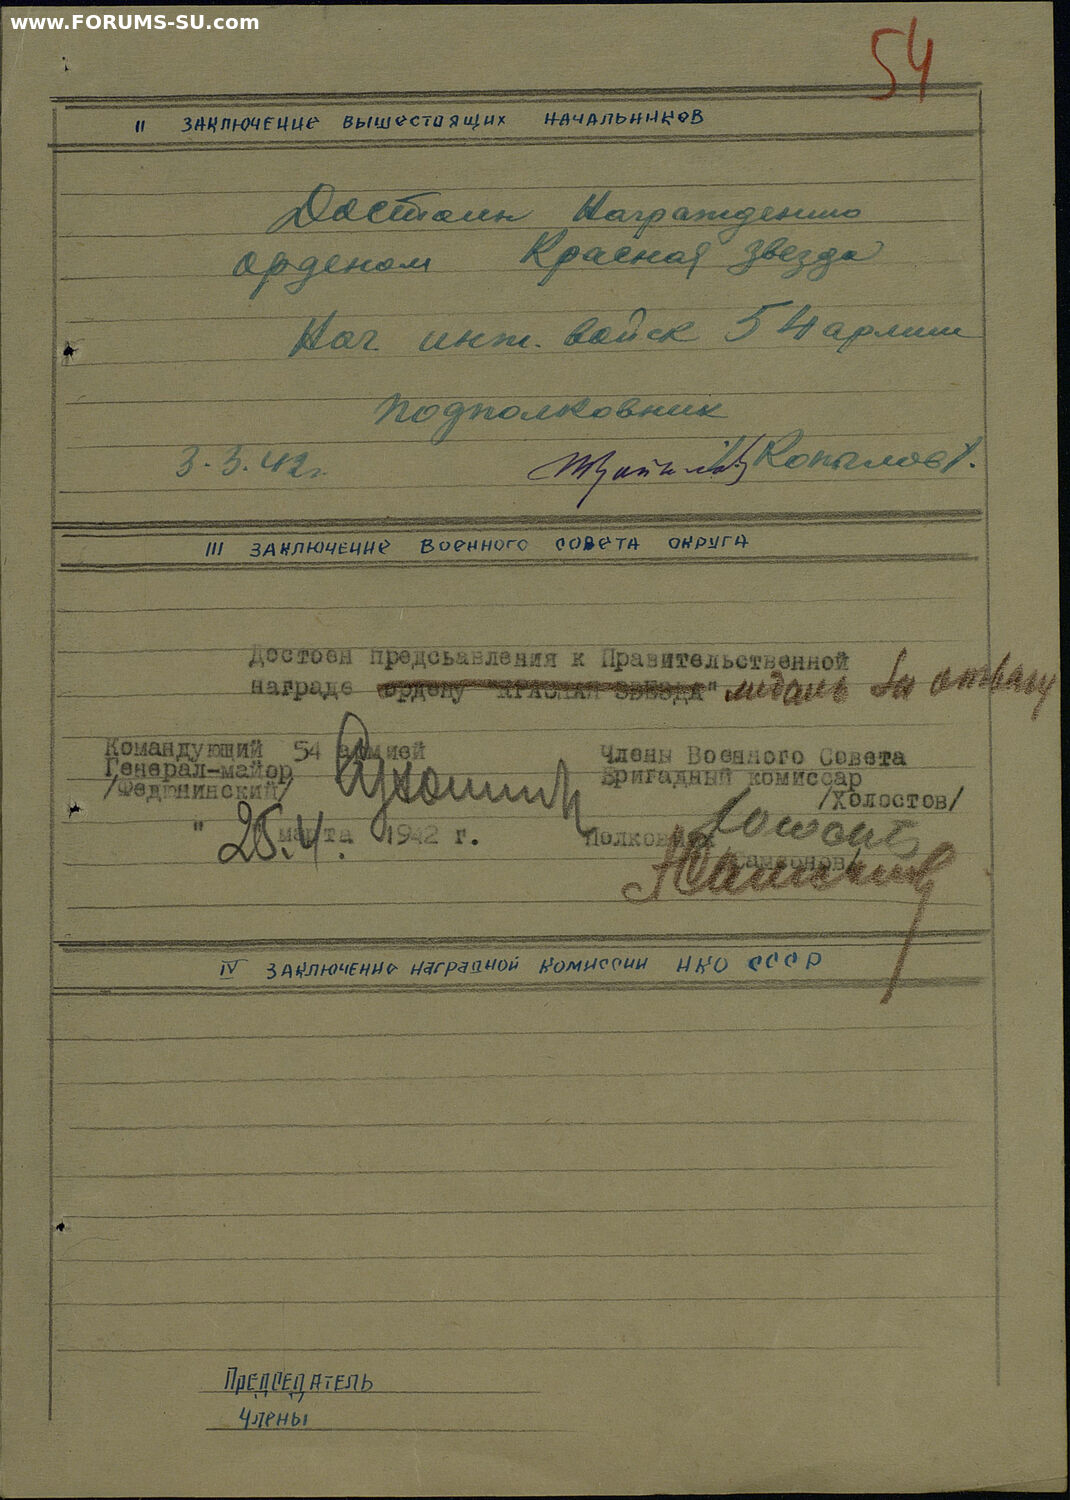 www.FORUMS-SU.com
54
II ЗАКЛЮЧЕНИЕ ВЫШЕСТОЯЩИХ НАЧАЛЬНИКОВ
Достоин Награждению
орденом Красная звезда
Нач инж. войск 54 армии
подполковник
3.3.42г. /Копылов/.
III ЗАКЛЮЧЕНИЕ ВОЕННОГО СОВЕТА ОКРУГА
Достоен предсьавления к Правительственной
награде ордену "КРАСНАЯ ЗВЕЗДА" медаль За отвагу
Командующий 54 армией Члены Военного Совета
Генерал-майор Бригадный комиссар
/Федюнинский/ /Холостов/
" 25.4. марта 1942 г. Полковник
/Самсонов/
IV ЗАКЛЮЧЕНИЕ НАГРАДНОЙ КОМИССИИ НКО СССР
ПРЕДСЕДАТЕЛЬ
Члены